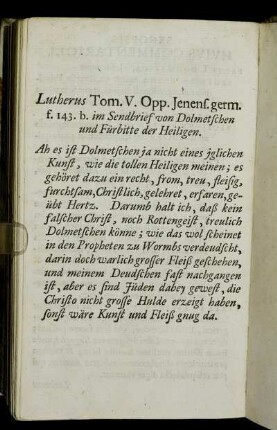 Lutherus Tom. V. Opp. Jenens. germ.
f. 143. b. im Sendbrief von Dolmetschen
und Fürbitte der Heiligen.
Ah es ist Dolmetschen ja nicht eines jglichen
Kunst, wie die tollen Heiligen meinen; es
gehöret dazu ein recht, from, treu, fleisig,
furchtsam, Christlich, gelehret, erfaren, ge-
übt Hertz. Darumb halt ich, daß kein
falscher Christ, noch Rottengeist, treulich
Dolmetschen könne; wie das wol scheinet
in den Propheten zu Wormbs verdeudscht,
darin doch warlich grosser Fleiß geschehen,
und meinem Deudschen fast nachgangen
ist, aber es sind Jüden dabey gewest, die
Christo nicht grosse Hulde erzeigt haben,
sonst wäre Kunst und Fleiß gnug da.